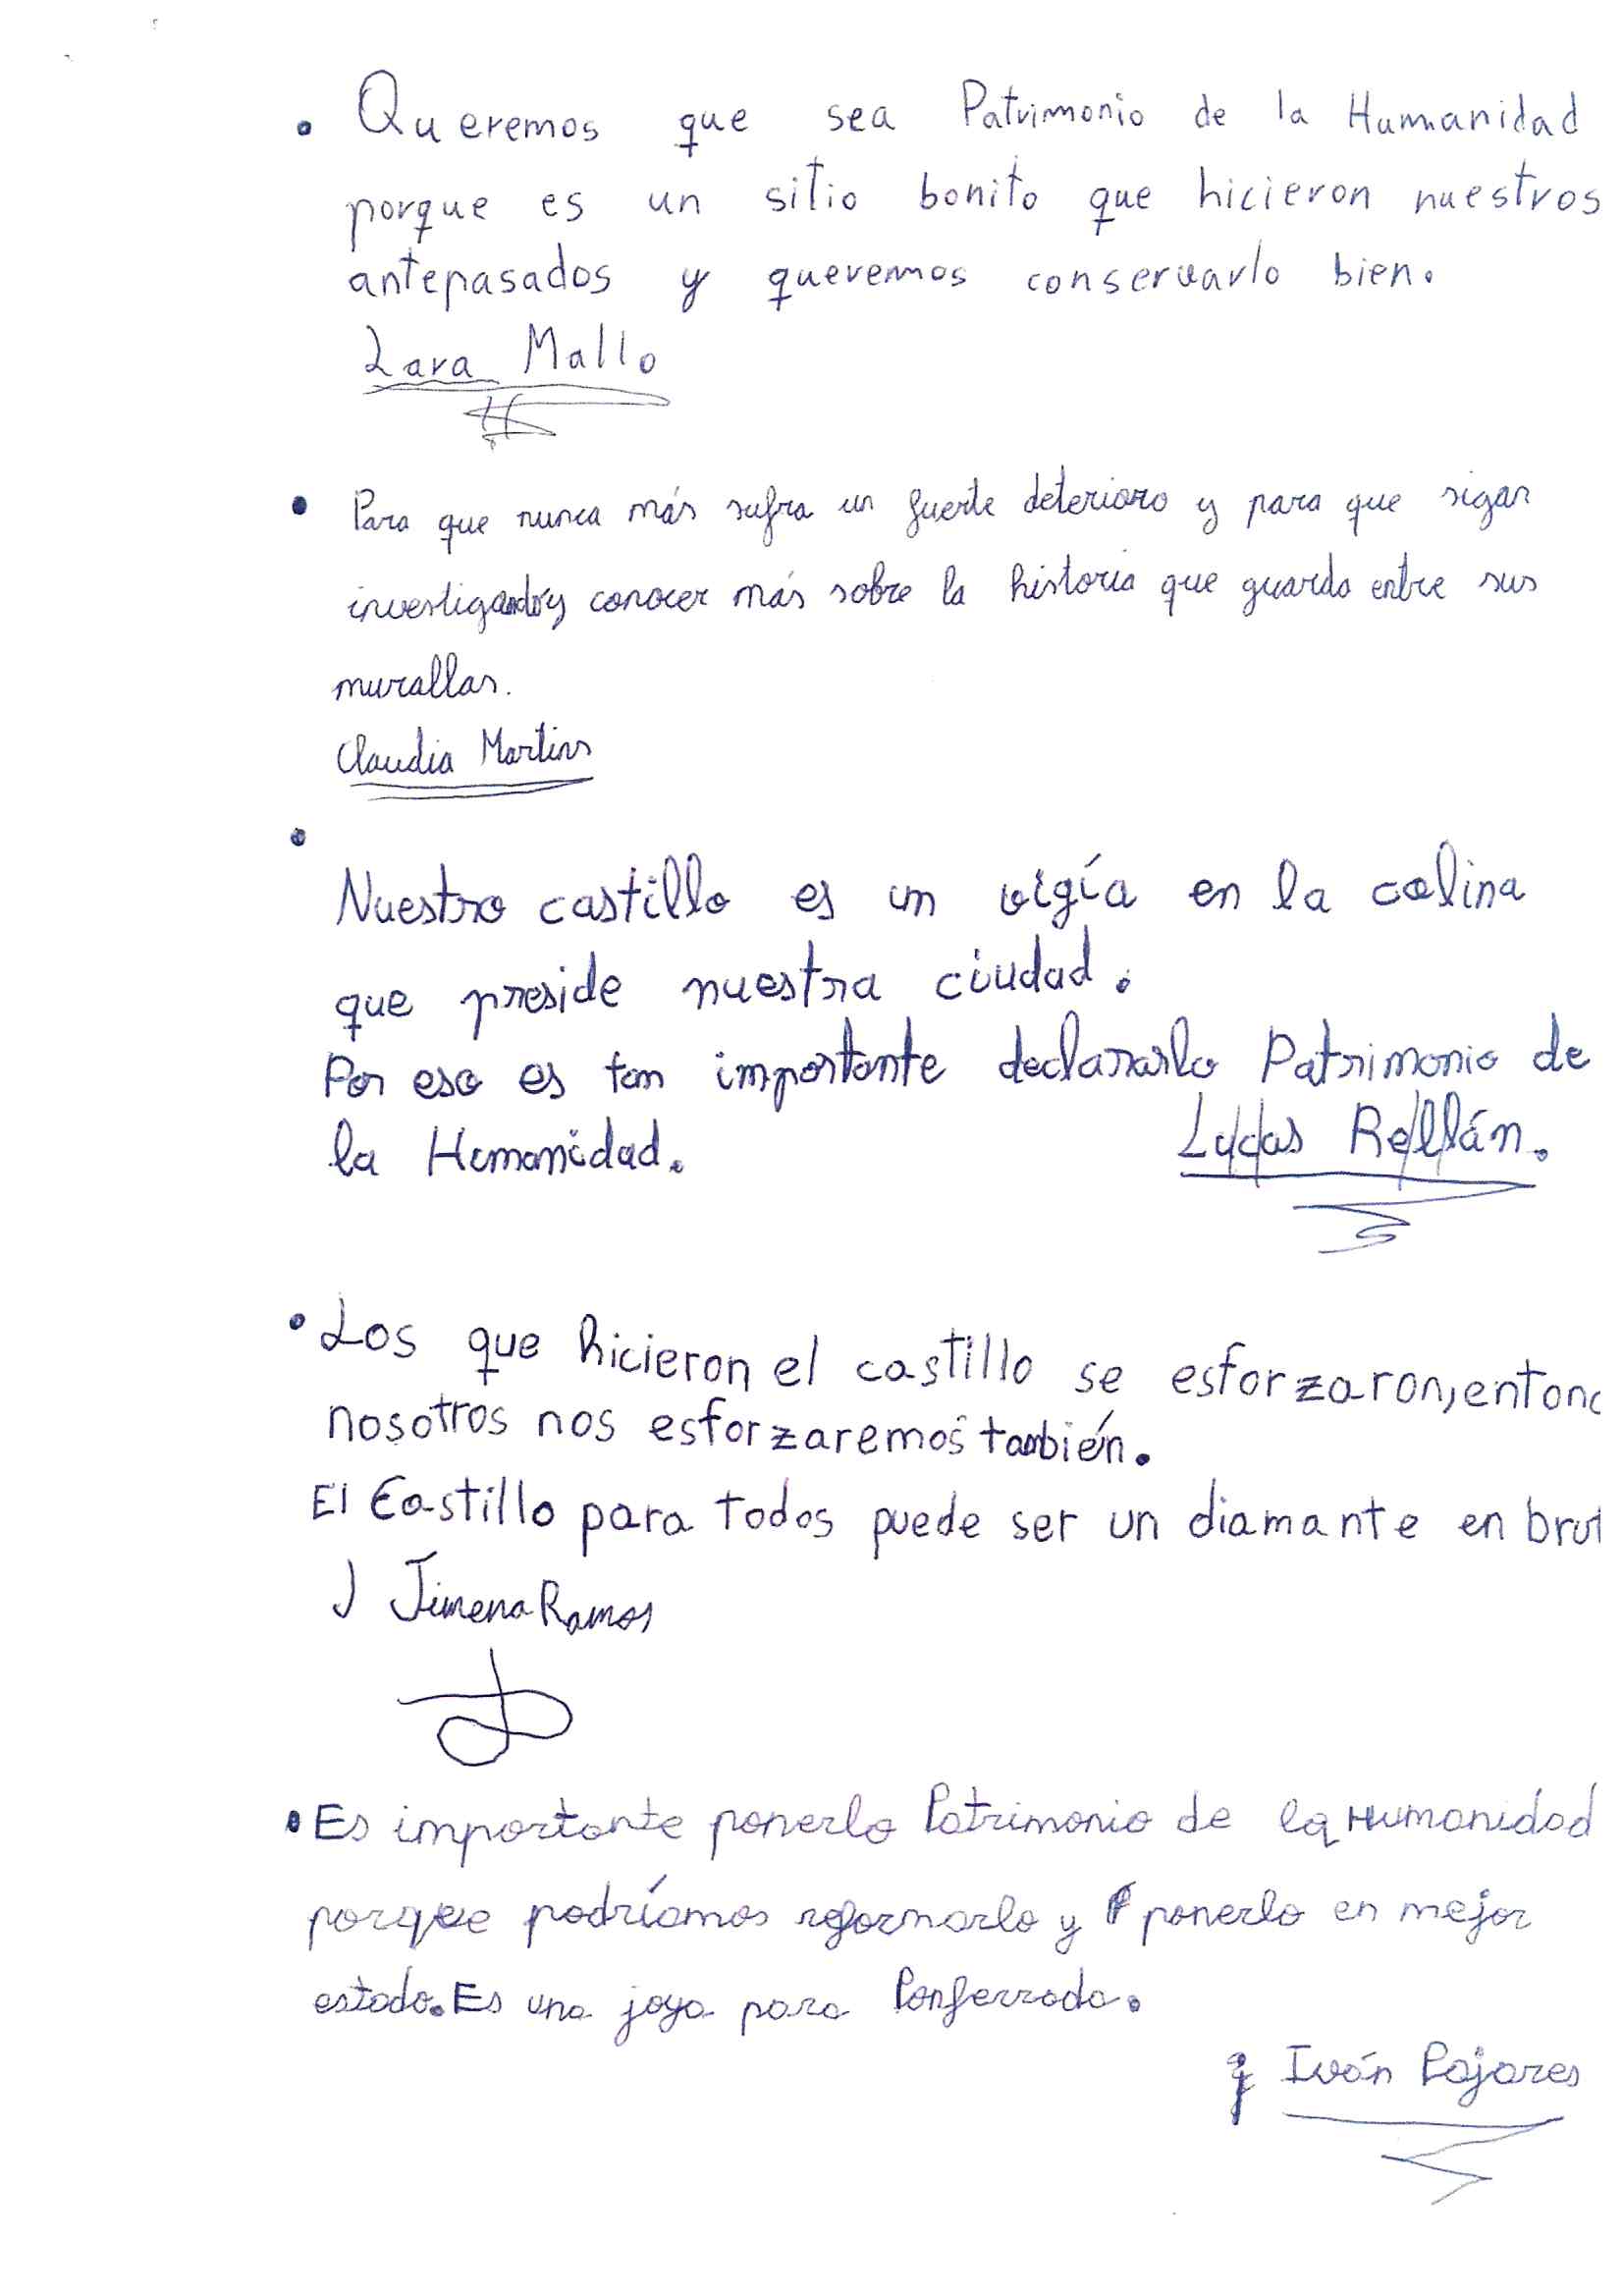 • Queremos que sea Patrimonio de la Humanidad
porque es un sitio bonito que hicieron nuestros
antepasados y queremos conservarlo bien.
Lara Mallo
• Para que nunca más sufra un fuerte deterioro y para que sigan
investigando y conocer más sobre la historia que guarda entre sus
murallas.
Claudia Martins
•
Nuestro castillo es un vigía en la colina
que preside nuestra ciudad.
Por eso es tan importante declararlo Patrimonio de
la Humanidad.
Lucas Rellán.
• Los que hicieron el castillo se esforzaron, entonc
nosotros nos esforzaremos también.
El Castillo para todos puede ser un diamante en brut
J Jimena Ramos
• Es importante ponerlo Patrimonio de la Humanidad
porque podríamos reformarlo y ponerlo en mejor
estado. Es una joya para Ponferrada.
Iván Pajares